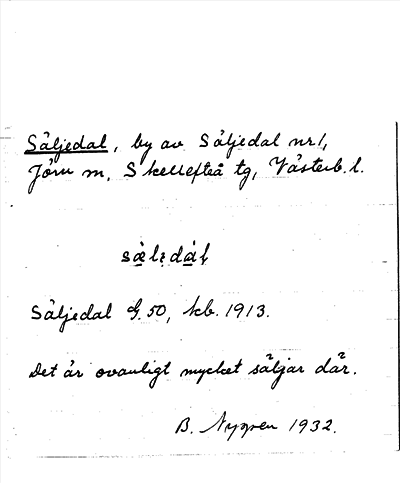 Säljedal, by av Säljedal nr 1,
Jörn sn, Skellefteå tg, Västerb. l.
Säljedal G. 50, kb. 1913.
Det är ovanligt mycket säljar där.
B. Nygren 1932.